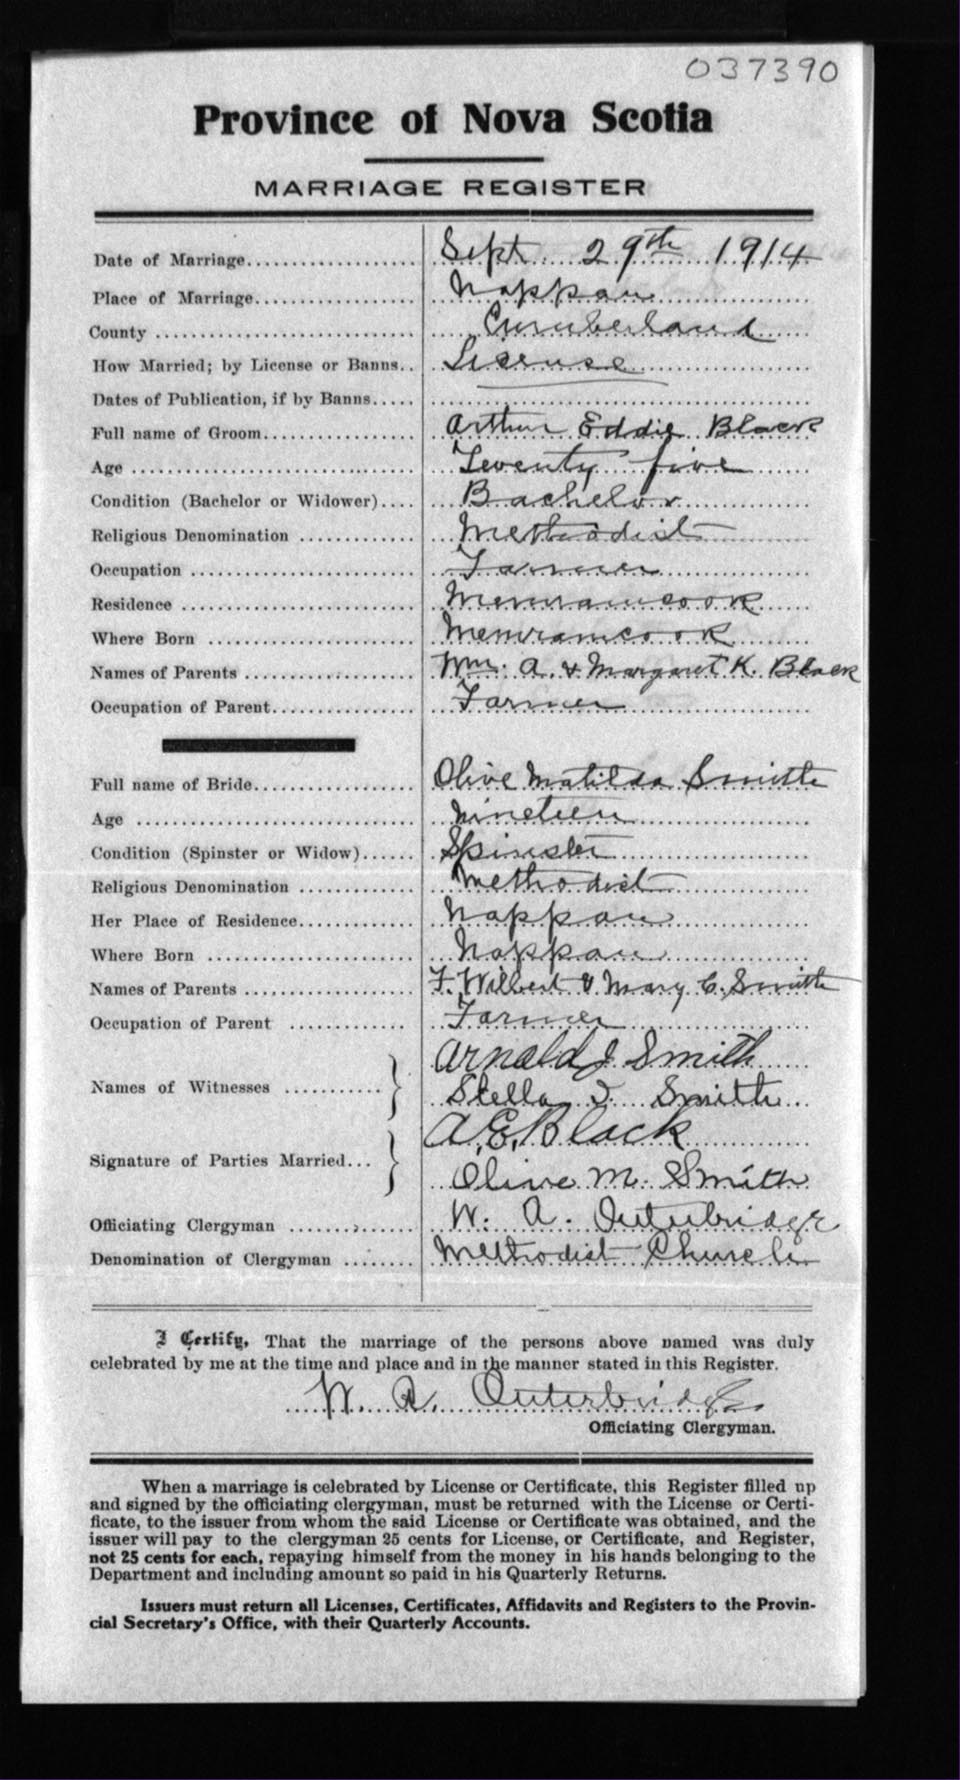 037390
Province of Nova Scotia
MARRIAGE REGISTER
Date of Marriage Sept 29th 1914
Place of Marriage Nappan
County Cumberland
How Married; by License or Banns License
Dates of Publication, if by Banns
Full name of Groom Arthur Eddie Black
Age Twenty five
Condition (Bachelor or Widower) Bachelor
Religious Denomination Methodist
Occupation Farmer
Residence Memramcook
Where Born Memramcook
Names of Parents Wm. A. & Margaret K. Black
Occupation of Parent Farmer
Full name of Bride Olive Matilda Smith
Age Nineteen
Condition (Spinster or Widow) Spinster
Religious Denomination Methodist
Her Place of Residence Nappan
Where Born Nappan
Names of Parents F. Wilbert & Mary C. Smith
Occupation of Parent Farmer
Names of Witnesses Arnold J Smith
Stella I. Smith
Signature of Parties Married A.E. Black
Olive M. Smith
Officiating Clergyman W. A. Outerbridge
Denomination of Clergyman Methodist Church
I Certify, That the marriage of the persons above named was duly
celebrated by me at the time and place and in the manner stated in this Register.
W. A. Outerbridge
Officiating Clergyman.
When a marriage is celebrated by License or Certificate, this Register filled up
and signed by the officiating clergyman, must be returned with the License or Certi-
ficate, to the issuer from whom the said License or Certificate was obtained, and the
issuer will pay to the clergyman 25 cents for License, or Certificate, and Register,
not 25 cents for each, repaying himself from the money in his hands belonging to the
Department and including amount so paid in his Quarterly Returns.
Issuers must return all Licenses, Certificates, Affidavits and Registers to the Provin-
cial Secretary's Office, with their Quarterly Accounts.